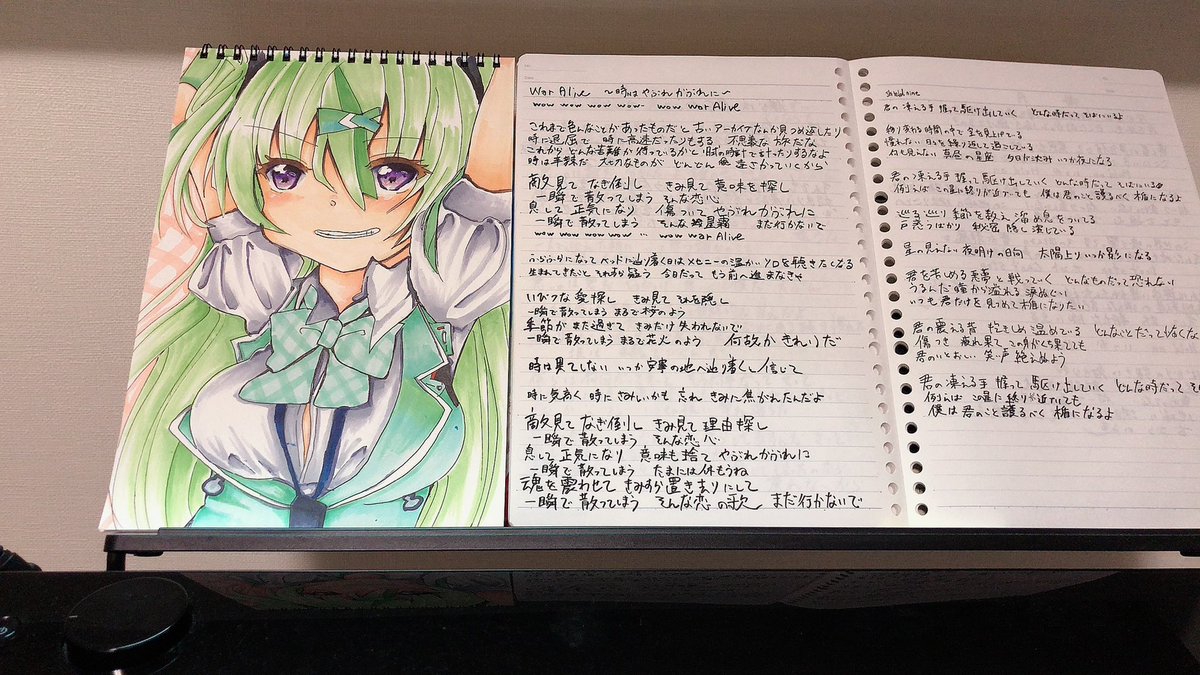 War Alive ～時はやぶれかぶれに～
wow wow wow wow wow war Alive
これまで色んなことがあったものだと 古いアーカイブなんか見つめ返したり
時に退屈で 時に高速だったりもする 不思議な旅だな
これから どんな苦難が待っているかと 肘の時計で計ったりするなよ
時は手残だ 大切なものが どんどん 遠ざかっていくから
敵見て なぎ倒し きみ見て 意味を探し
一瞬で 散ってしまう そんな恋心
息して 正気になり 傷ついて やぶれかぶれに
一瞬で 散ってしまう そんな 星霜 まだ行かないで
wow wow wow wow … wow war Alive
ふらふらになって ベッドに辿り着く日は メロニーの温かいソロを聴きたくなる
生まれてきたこと それすら疑う 今日だって もう前へ進まなきゃ
いびつな愛探し きみ見て それを隠し
一瞬で散ってしまう まるで桜のよう
季節が また過ぎて きみだけ 失われないで
一瞬で 散ってしまう まるで花火のよう 何故か きれいだ
時は果てしない いつか安寧の地へ辿り着くと信じて
時に気高く 時に さみしいかも 忘れ きみに焦がれたんだよ
敵見て なぎ倒し きみ見て 理由探し
一瞬で 散ってしまう そんな恋心
息して 正気になり 意味も捨て やぶれかぶれに
一瞬で 散ってしまう たまには休もうね
魂を震わせて きみすら置き去りにして
一瞬で 散ってしまう そんな恋の歌 まだ行かないで
shield nine
君の凍える手 握って駆け出していく どんな時だって そばにいるよ
移り変わる時間の中で 空を見上げている
慣れない日々を繰り返して過ごしている
ねも見えない 真昼の星座 夕日が沈み いつか夜になる
君の凍える手 握って駆け出していく どんな時だって そばにいる
例えば この星に終りが近づいても 僕は君のこと護るべく 楯になるよ
巡る巡り 細を数え 溜め息をついてる
戸惑うばかり 秘密 隠し 演じている
星の見えない 夜明けの日向 太陽より いつか影になる
君を苦しめる悪夢と 戦っていく どんなものだって恐れない
うるんだ瞳から溢れる 涙ぬぐい
いつも 君だけを見つめて 楯になりたい
君の震える背 抱きしめ 温めている どんなことだって しなくな
傷つき 疲れ果て この身がくち果てても
君のいとおしい 笑い声 絶えぬよう
君の凍える手 握って駆け出していく どんな時だって そ
例えば 地に終りが近づいても
僕は君のこと護るべく 楯になるよ